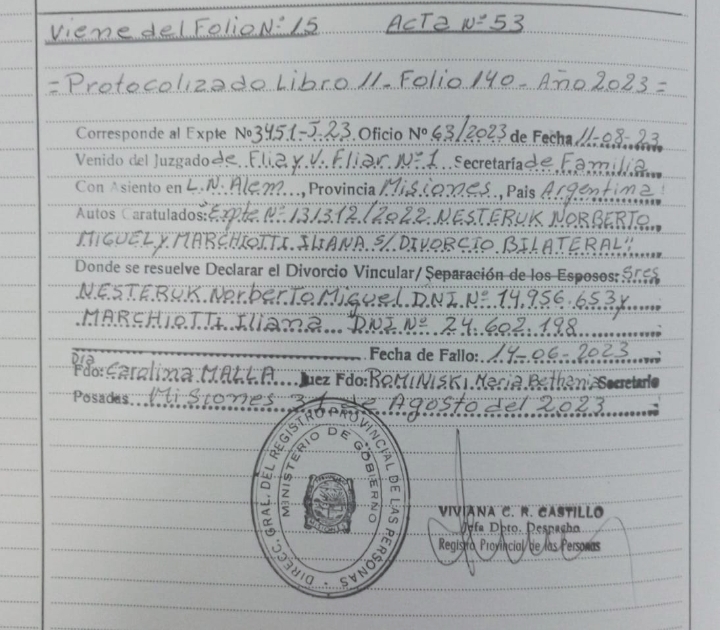 Viene del Folio Nº 15 Acta Nº 53
= Protocolizado Libro 11 - Folio 140 - Año 2023 =
Corresponde al Expte Nº 3451-J-23 Oficio Nº 63/2023 de Fecha 11-08-23
Venido del Juzgado de Flia y V. Fliar. Nº 1 Secretaría de Familia
Con Asiento en L.N. Alem, Provincia Misiones, Pais Argentina
Autos Caratulados: Expte Nº 131312/2022 NESTERUK NORBERTO
MIGUEL Y MARCHIOTTI ILIANA S/ DIVORCIO BILATERAL"
Donde se resuelve Declarar el Divorcio Vincular/ Separación de los Esposos: Sres
NESTERUK Norberto Miguel D.N.I. Nº 14.956.653 y
MARCHIOTTI Iliana DNI Nº 24.602.198
Fecha de Fallo: 14-06-2023
Dra
Fdo: Carolina MALLA Juez Fdo: ROMINISKI Maria Bethania Secretario
Posadas Misiones 31 de Agosto del 2023
DIREC. GRAL. DEL REGISTRO PROVINCIAL DE LAS PERSONAS
MINISTERIO DE GOBIERNO
VIVIANA C. R. CASTILLO
Jefa Dpto. Despacho
Registro Provincial de las Personas